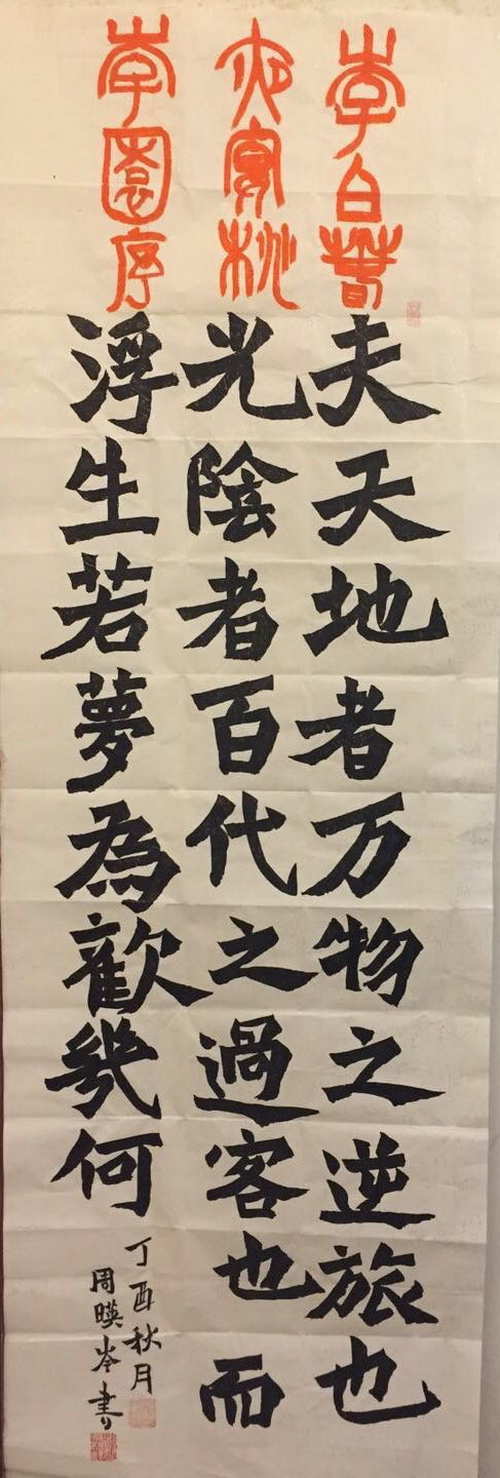 李白春
夜宴桃
李園序
夫天地者万物之逆旅也
光陰者百代之過客也而
浮生若夢為歡幾何
丁酉秋月
周暎岑書